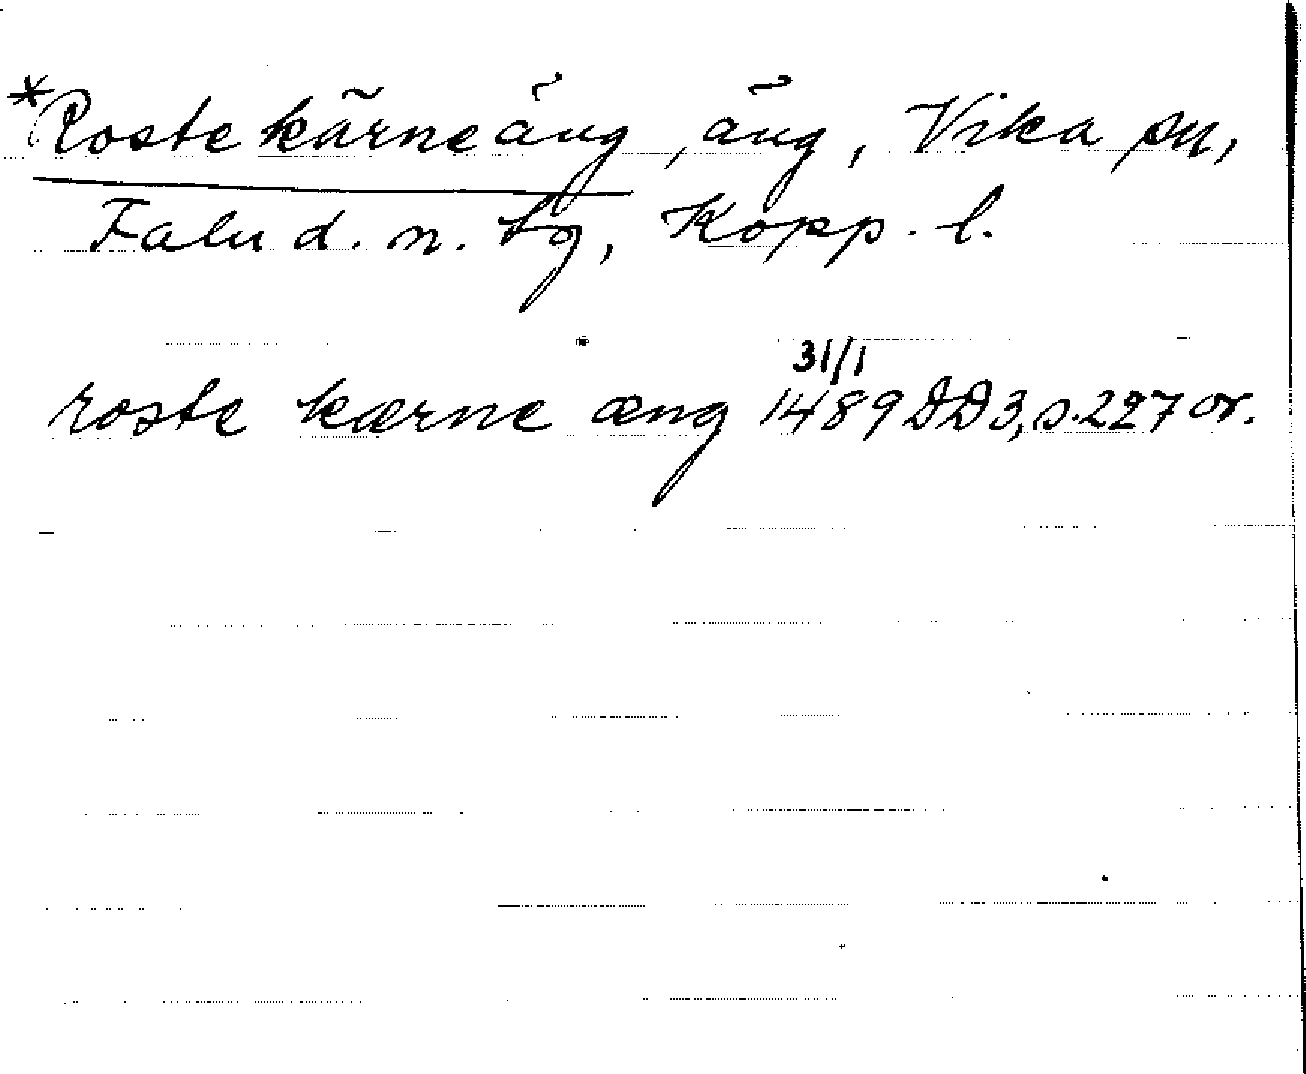 *Rostekärneäng, äng, Vika sn,
Falu d. n. tg, Kopp. l.
31/1
roste kærne æng 1489 DD 3, s. 227 or.